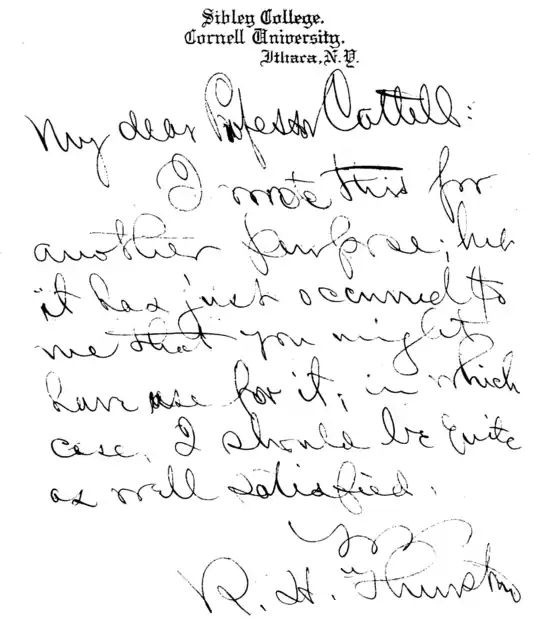 Sibley College.
Cornell University.
Ithaca, N.Y.
My dear Professor Cattell:
I wrote this for
another purpose; but
it has just occurred to
me that you might
have use for it; in which
case, I should be quite
as well satisfied.
R. H. Thurston